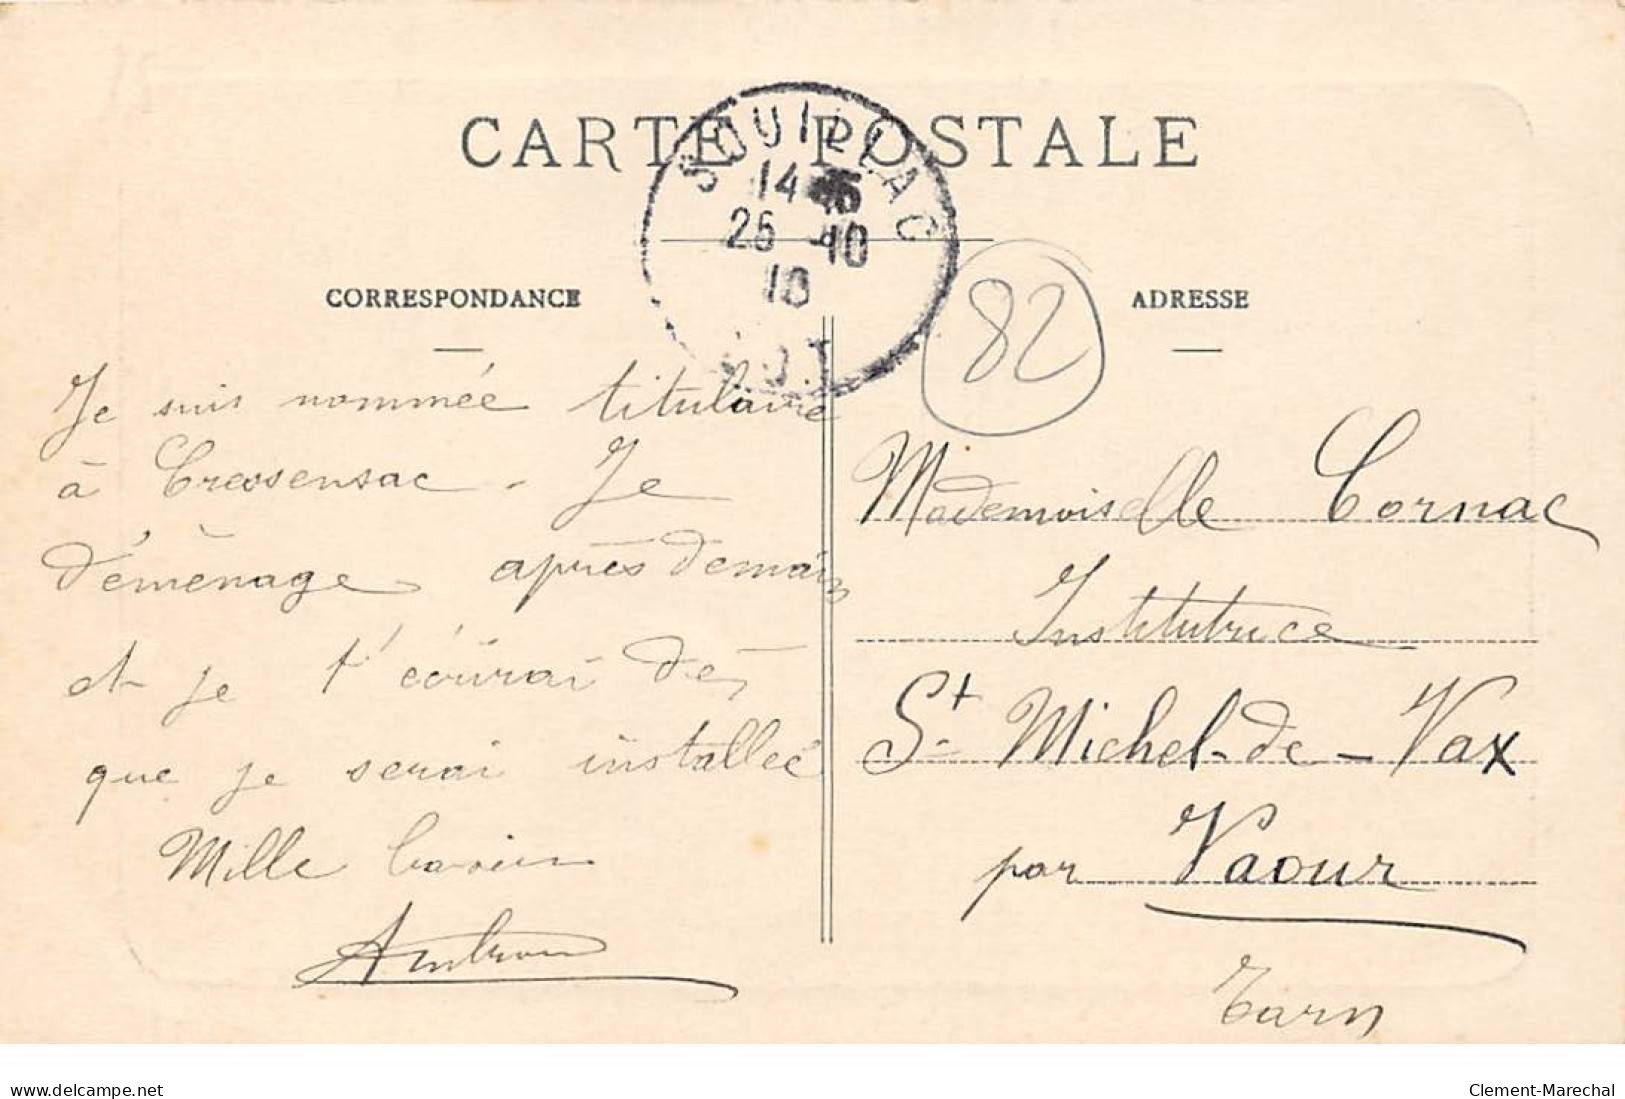 CARTE POSTALE
SOUILLAC
14 45
26 -10
10
LOT
CORRESPONDANCE
ADRESSE
82
Je suis nommée titulaire
à Cressensac - Je
déménage après demain
et je t'écrirai dès
que je serai installée
Mille
Mademoiselle Cornac
Institutrice
St Michel-de-Vax
par Vaour
Tarn
delcampe.net
Clement-Marechal